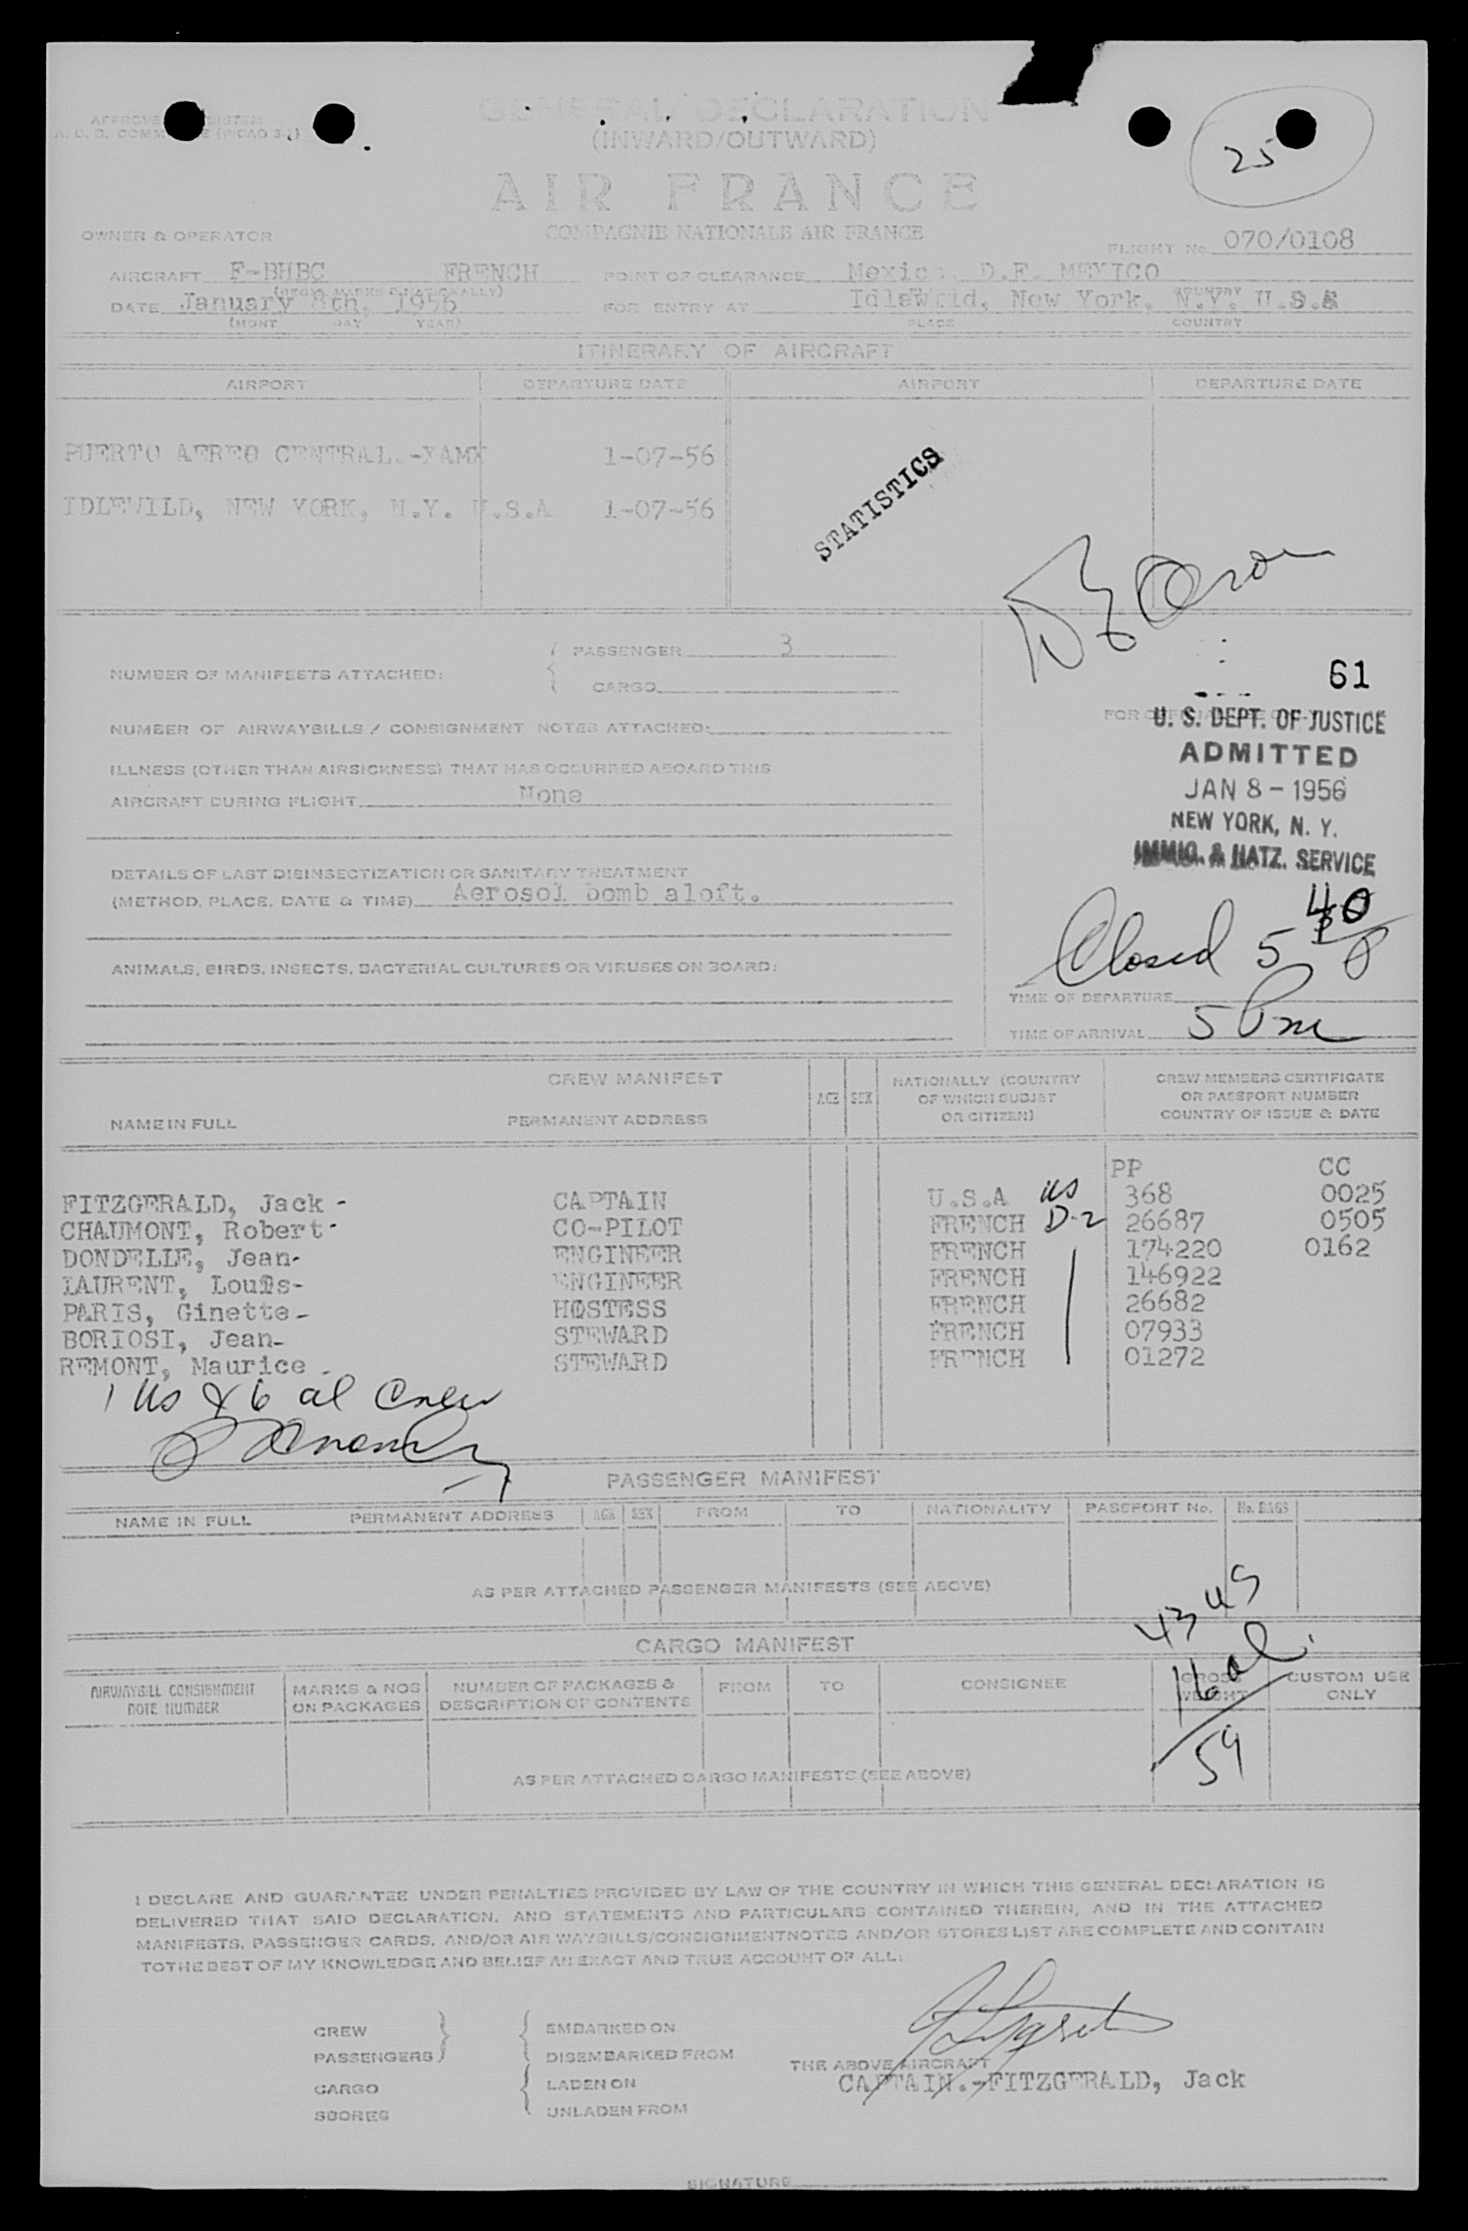 GENERAL DECLARATION
(INWARD/OUTWARD)
25
AIR FRANCE
OWNER & OPERATOR COMPAGNIE NATIONALE AIR FRANCE
FLIGHT No. 070/0108
AIRCRAFT F-BHBC FRENCH POINT OF CLEARANCE Mexico, D.F. MEXICO
DATE January 8th, 1956 FOR ENTRY AT Idlewild, New York, N.Y. U.S.A
(MONT DAY YEAR) PLACE COUNTRY
ITINERARY OF AIRCRAFT
AIRPORT DEPARTURE DATE AIRPORT DEPARTURE DATE
PUERTO AEREO CENTRAL.- 1-07-56
IDLEWILD, NEW YORK, N.Y. U.S.A 1-07-56
STATISTICS
NUMBER OF MANIFESTS ATTACHED: { PASSENGER 3
{ CARGO
61
NUMBER OF AIRWAYBILLS / CONSIGNMENT NOTES ATTACHED:
U. S. DEPT. OF JUSTICE
ADMITTED
JAN 8 - 1956
NEW YORK, N. Y.
IMMIG. & NATZ. SERVICE
ILLNESS (OTHER THAN AIRSICKNESS) THAT HAS OCCURRED ABOARD THIS
AIRCRAFT DURING FLIGHT None
DETAILS OF LAST DISINSECTIZATION OR SANITARY TREATMENT
(METHOD, PLACE, DATE & TIME) Aerosol bomb aloft.
Closed 5 40
ANIMALS, BIRDS, INSECTS, BACTERIAL CULTURES OR VIRUSES ON BOARD:
TIME OF DEPARTURE
TIME OF ARRIVAL 5 Pm
CREW MANIFEST
NAME IN FULL PERMANENT ADDRESS AGE SEX NATIONALLY (COUNTRY OF WHICH SUBJET OR CITIZEN) CREW MEMBERS CERTIFICATE OR PASSPORT NUMBER COUNTRY OF ISSUE & DATE
PP CC
FITZGERALD, Jack - CAPTAIN U.S.A US 368 0025
CHAUMONT, Robert- CO-PILOT FRENCH D-2 26687 0505
DONDELLE, Jean- ENGINEER FRENCH 174220 0162
LAURENT, Louis- ENGINEER FRENCH 146922
PARIS, Ginette- HOSTESS FRENCH 26682
BORIOSI, Jean- STEWARD FRENCH 07933
REMONT, Maurice - STEWARD FRENCH 01272
1 US & 6 al Crew
PASSENGER MANIFEST
NAME IN FULL PERMANENT ADDRESS AGE SEX FROM TO NATIONALITY PASSPORT No. No. BAGS
AS PER ATTACHED PASSENGER MANIFESTS (SEE ABOVE)
43 US
16 al
59
CARGO MANIFEST
AIRWAYBILL CONSIGNMENT NOTE NUMBER MARKS & NOS ON PACKAGES NUMBER OF PACKAGES & DESCRIPTION OF CONTENTS FROM TO CONSIGNEE GROSS WEIGHT CUSTOM USE ONLY
AS PER ATTACHED CARGO MANIFESTS (SEE ABOVE)
I DECLARE AND GUARANTEE UNDER PENALTIES PROVIDED BY LAW OF THE COUNTRY IN WHICH THIS GENERAL DECLARATION IS
DELIVERED THAT SAID DECLARATION, AND STATEMENTS AND PARTICULARS CONTAINED THEREIN, AND IN THE ATTACHED
MANIFESTS, PASSENGER CARDS, AND/OR AIR WAYBILLS/CONSIGNMENTNOTES AND/OR STORES LIST ARE COMPLETE AND CONTAIN
TOTHE BEST OF MY KNOWLEDGE AND BELIEF AN EXACT AND TRUE ACCOUNT OF ALL:
CREW } { EMBARKED ON
PASSENGERS } { DISEMBARKED FROM
THE ABOVE AIRCRAFT
CARGO { LADEN ON
CAPTAIN.-FITZGERALD, Jack
SBORES UNLADEN FROM
SIGNATURE